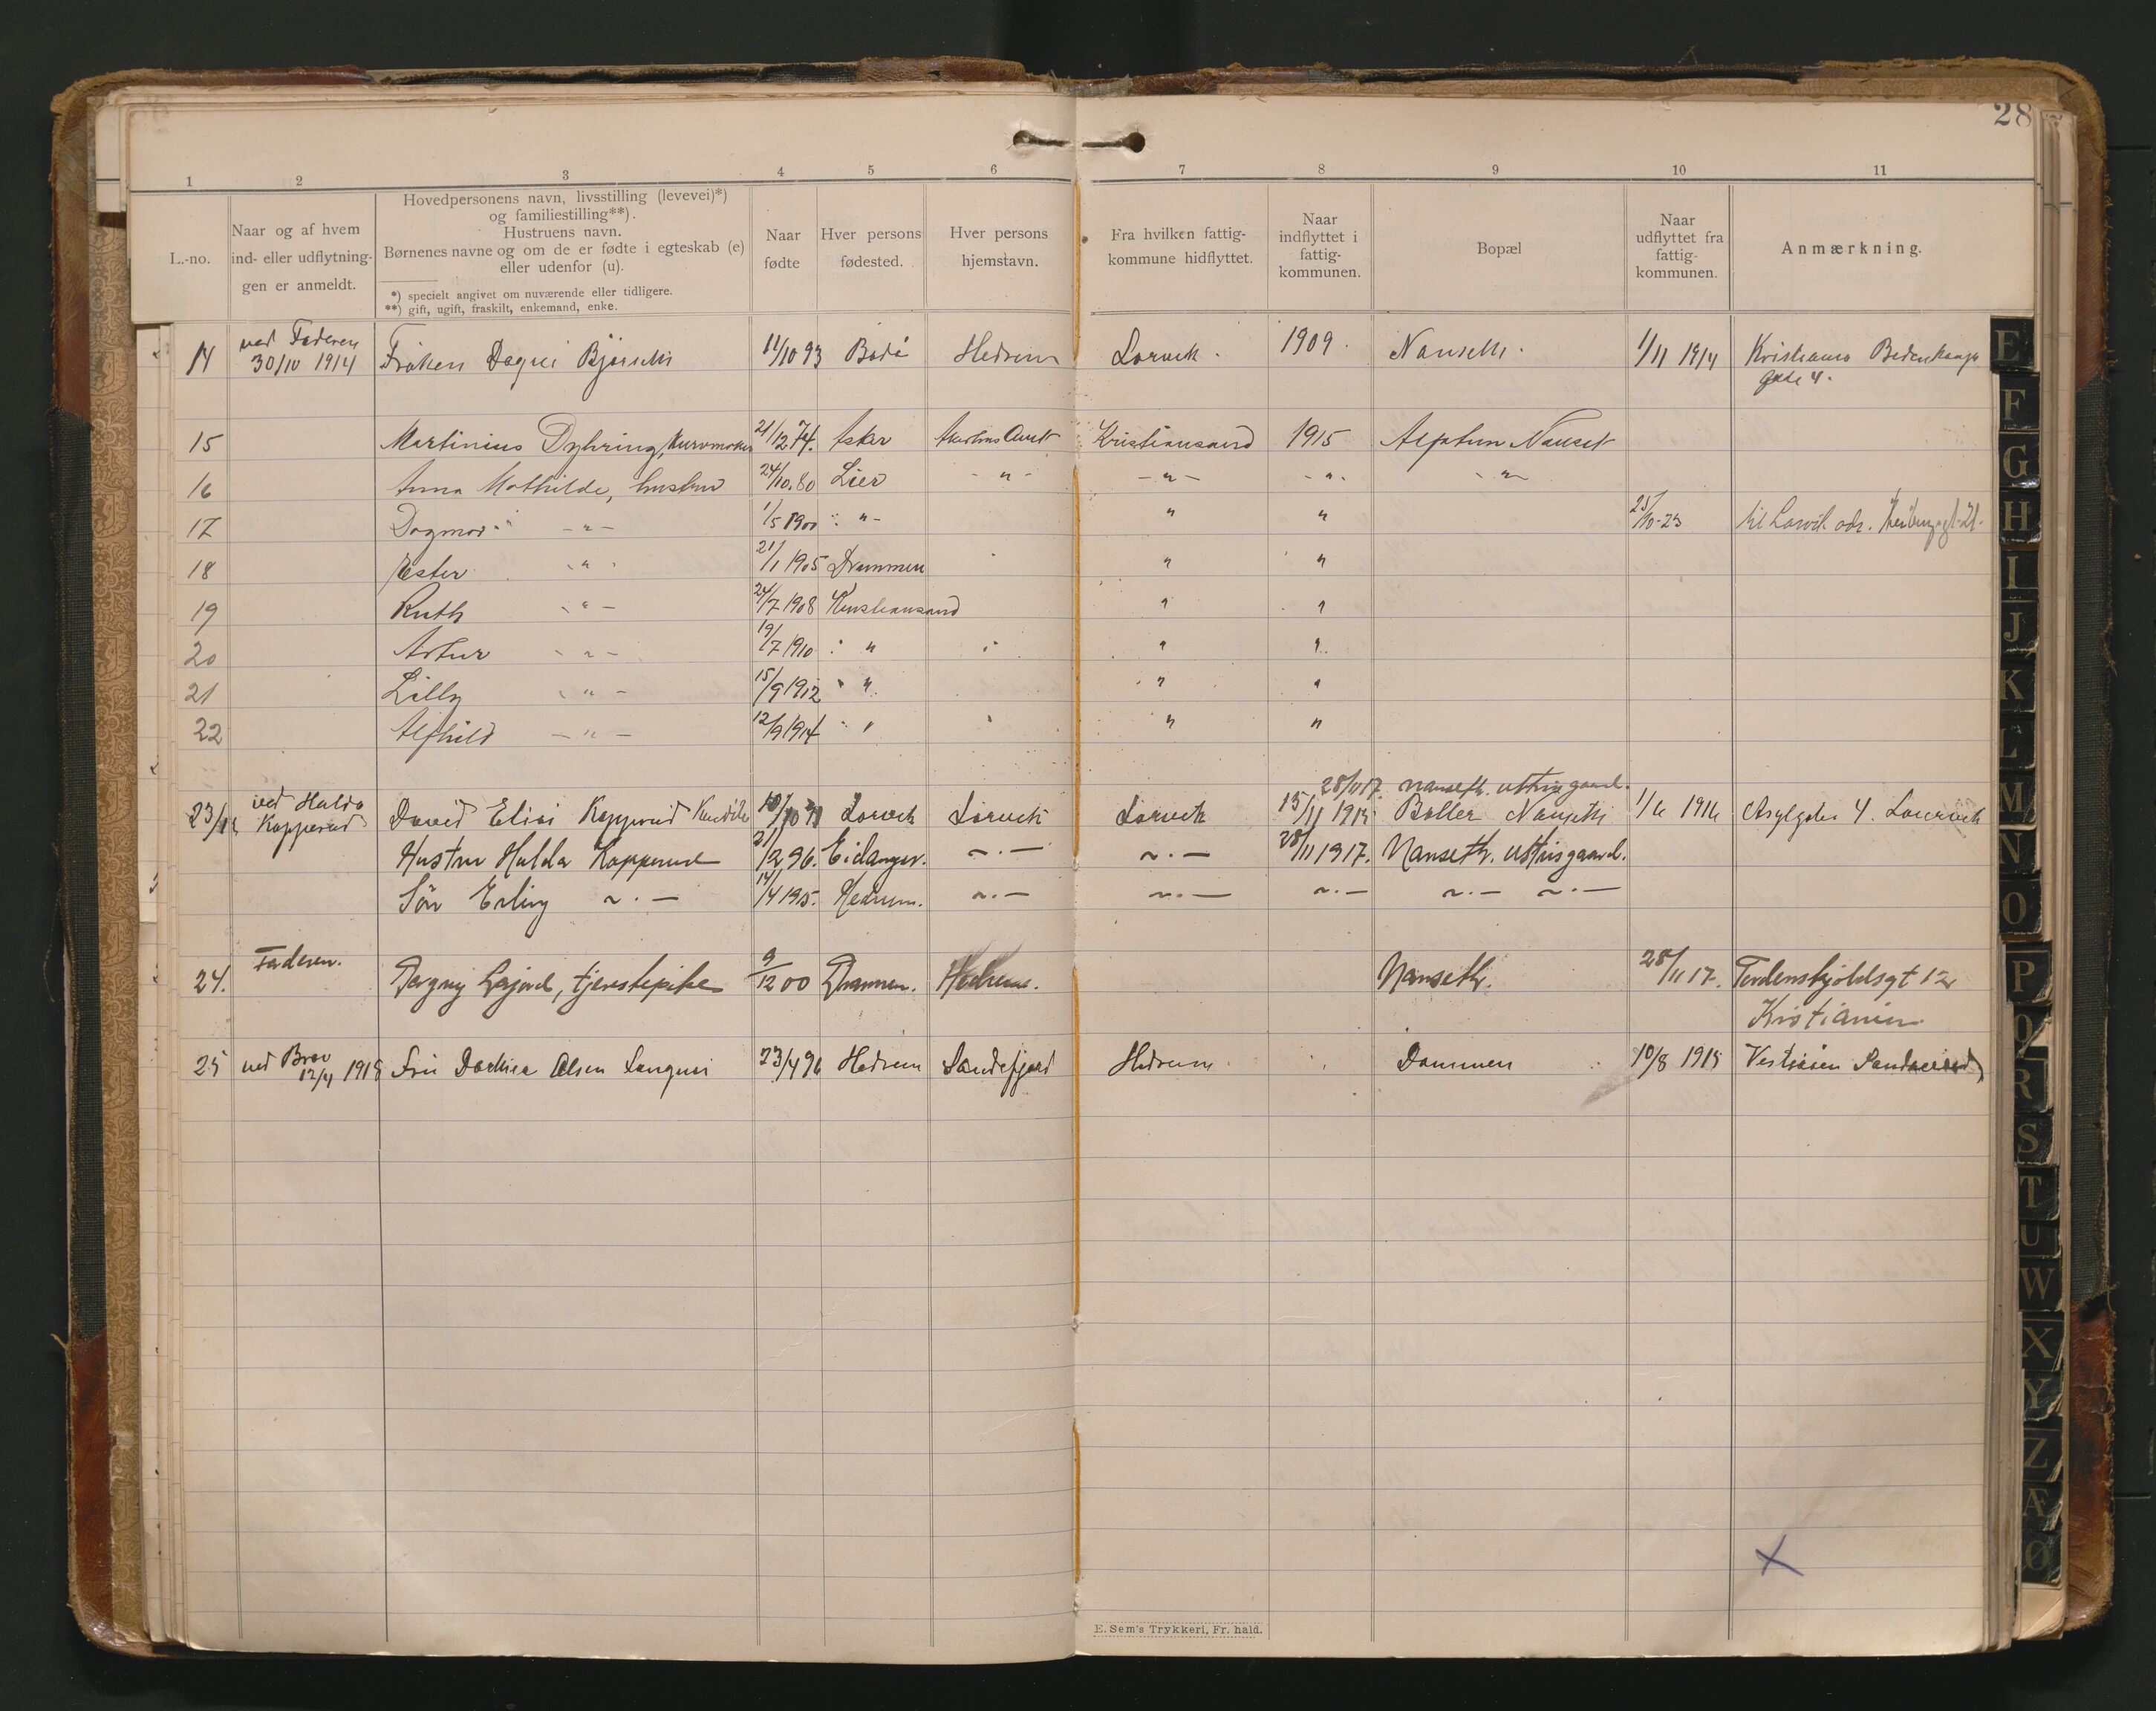 28
1 2 3 4 5 6 7 8 9 10 11
L.-no.
Naar og af hvem
ind- eller udflytnin-
gen er anmeldt.
Hovedpersonens navn, livsstilling (levevei)*)
og familiestilling**).
Hustruens navn.
Børnenes navne og om de er fødte i egteskab (e)
eller udenfor (u).
*) specielt angivet om nuværende eller tidligere.
**) gift, ugift, fraskilt, enkemand, enke.
Naar
fødte
Hver persons
fødested.
Hver persons
hjemstavn.
Fra hvilken fattig-
kommune hidflyttet.
Naar
indflyttet i
fattig-
kommunen.
Bopæl
Naar
udflyttet fra
fattig-
kommunen.
Anmærkning.
ved Faderen
14 30/10 1914 Frøken Dagny 11/10 93 Bodø Hedrum Larvik. 1909. Nanseth. 1/11 1914 Kristiania
gade 4.
15 Martinius Dyhring, Kurvmaker 21/12.74. Asker Akershus Amt Kristiansand 1915 Nanset
16 Anna Mathilde, hustru 24/10.80 Lier - " - - " - - " - - " -
17 Dagmar - " - 1/5 1900 " - " " 25/10-23 til Larvik adr.
18 Ester " 21/1 1905 Drammen " "
19 Ruth - " - 24/7 1908 Kristiansand " "
20 Artur - " - 19/7 1910 " " "
21 Lilly - " - 15/9 1912 " " "
22 Alfhild - " - 12/9 1914 " " "
28/11 17. Nanseth.
ved Hulda
23 Kopperud David Elias Kopperud Larvik Larvik Larvik 15/11 1915 Bøller Nanseth 1916 4. Laurvik
Hustru Hulda Kopperud 96. Eidanger. ~.— ~.— 28/11 1917. Nanseth.
Søn Erling ~.— 14/4 1915. Hedrum. ~.— ~.— ~.— ~.— ~.—
Faderen.
24. tjenestepike 9/12 00 Hedrum. Nanseth. 28/11 17. Tordenskjoldsgt 12
Kristiania
25 ved Bror 12/4 1918 Olsen 23/4 96 Hedrum Sandefjord Hedrum Dammen 10/8 1915
E. Sem's Trykkeri, Fr. hald.
E
F
G
H
I
J
K
L
M
N
O
P
Q
R
S
T
U
W
X
Y
Z
Æ
Ø